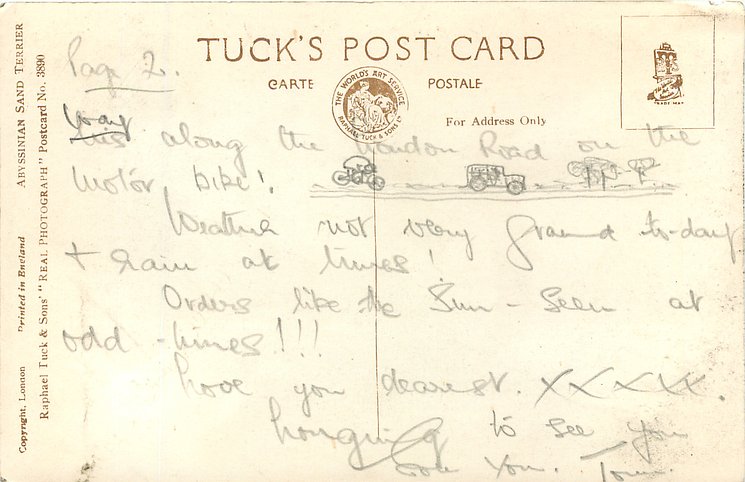 TUCK'S POST CARD
CARTE POSTALE
THE WORLD'S ART SERVICE
RAPHAEL TUCK & SONS LD
For Address Only
TRADE MARK
Page 2.
way
his along the London Road on the
motor bike!
Weather not very grand to-day
+ rain at times!
Orders like the Sun - Seen at
odd times!!!
Love you dearest. XXXXX.
Longing to see you
Tom.
ABYSSINIAN SAND TERRIER
Raphael Tuck & Sons' "REAL PHOTOGRAPH" Postcard No. 3890
Copyright, London Printed in England